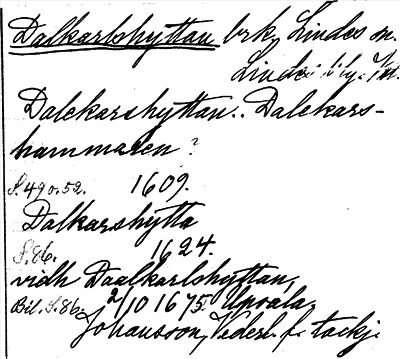 Dalkarlshyttan brk, Lindes sn.
Lindes
Dalekarshyttan.. Dalekars-
hammaren?
S. 49 o. 52. 1609.
Dalkarshytta
S. 86. 1624.
vidh Daalkarlshyttan,
Bil. S. 86. 2/10 1675. Upsala.
Johansson, f. tackj.